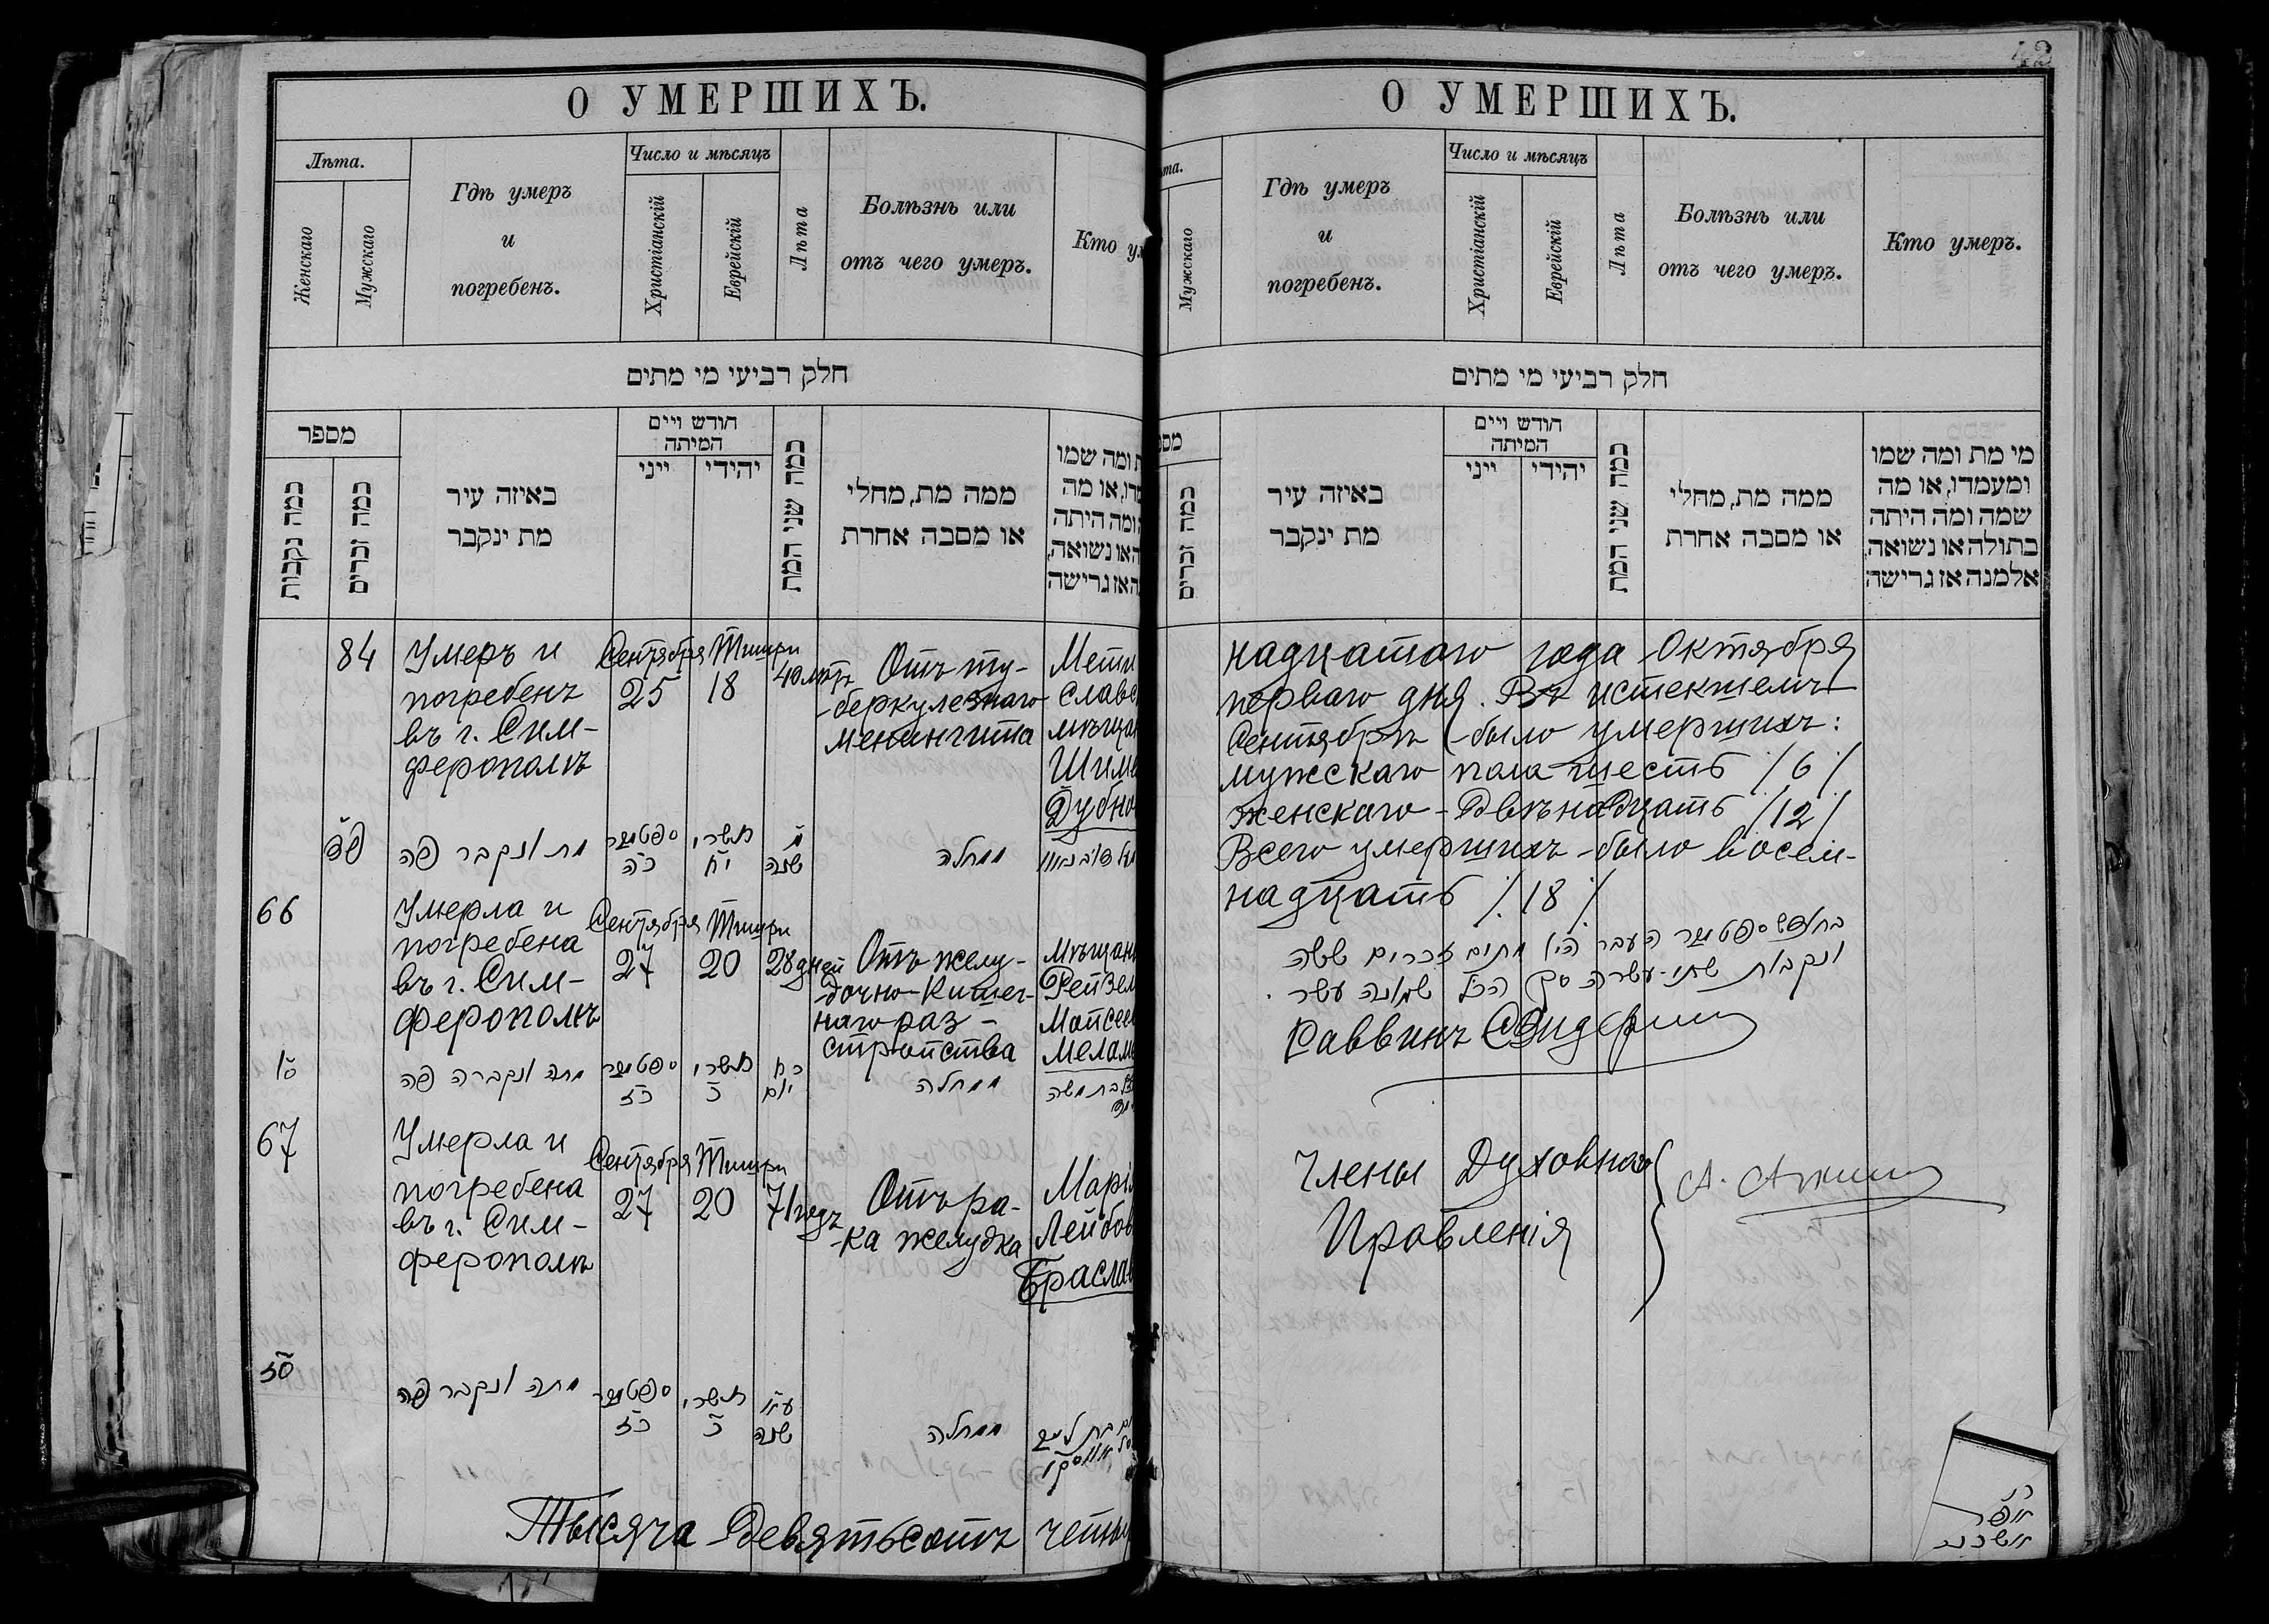 О УМЕРШИХЪ.
Лѣта.
Женскаго
Мужскаго
Гдѣ умеръ
и
погребенъ.
Число и мѣсяцъ
Христіанскій
Еврейскій
Лѣта
Болѣзнь или
отъ чего умеръ.
Кто ум
חלק רביעי מי מתים
מספר
כמה נקבות
כמה זכרים
באיזה עיר
מת ינקבר
חודש ויים
המיתה
ייני
יהידי
כמה שני המת
ממה מת, מחלי
או מסבה אחרת
ת ומה שמו
או מה
ומה היתה
או נשואה,
אז גרישה
84
Умеръ и
погребенъ
въ г. Сим-
ферополѣ
Сентября
25
Тишри
18
40 лѣтъ
Отъ ту-
беркулезнаго
менингита
Мети
Славс
мѣщан
Шиме
Дубно
פד
מת ונקבר פה
ספטעמבר
כה
תשרי
יח
מ
שנה
ממחלה
66
Умерла и
погребена
въ г. Сим-
ферополѣ
Сентября
27
Тишри
20
28 дней
Отъ желу-
дочно-кишеч-
наго раз-
стройства
Мѣщан
Рейзел
Моисеев
Мелам
סו
מתה ונקברה פה
ספטעמבר
כז
תשרי
כ
כח
יום
ממחלה
בת משה
67
Умерла и
погребена
въ г. Сим-
ферополѣ
Сентября
27
Тишри
20
71 годъ
Отъ ра-
ка желудка
Марія
Лейбов
Браслав
סז
מתה ונקבר פה
ספטעמבר
כז
תשרי
כ
עא
שנה
ממחלה
Тысяча девятьсотъ четы
42
О УМЕРШИХЪ.
та.
Мужскаго
Гдѣ умеръ
и
погребенъ.
Число и мѣсяцъ
Христіанскій
Еврейскій
Лѣта
Болѣзнь или
отъ чего умеръ.
Кто умеръ.
חלק רביעי מי מתים
מס
כמה זכרים
באיזה עיר
מת ינקבר
חודש ויים
המיתה
ייני
יהידי
כמה שני המת
ממה מת, מחלי
או מסבה אחרת
מי מת ומה שמו
ומעמדו, או מה
שמה ומה היתה
בתולה או נשואה,
אלמנה אז גרישה
надцатаго года Октября
перваго дня. Въ истекшемъ
Сентябрѣ было умершихъ:
мужскаго пола шесть /6/
женскаго - двѣнадцать /12/
Всего умершихъ было восем-
надцать /18/
בחודש ספטעמבר העבר היו מתים זכרים ששה
ונקבות שתי-עשרה סך הכל שמונה עשר
Раввинъ
Члены Духовнаго
Правленія
А.